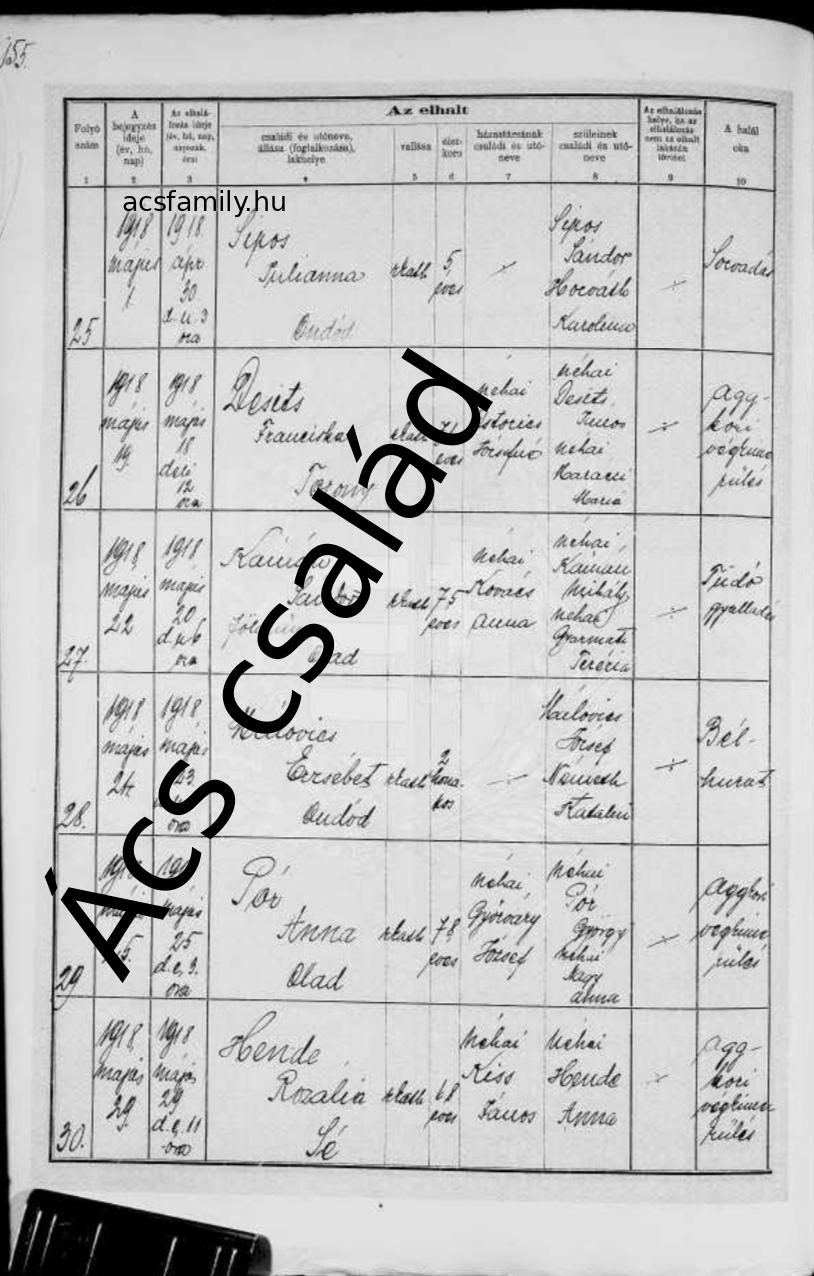 155.
Az elhalt
Folyó szám
A bejegyzés ideje (év, hó, nap)
Az elhalálozás ideje (év, hó, nap, napszak, óra)
családi és utóneve, állása (foglalkozása), lakhelye
vallása
élet-kora
házastársának családi és utóneve
szüleinek családi és utóneve
Az elhalálozás helye, ha az elhalálozás nem az elhalt lakásán történt
A halál oka
1 2 3 4 5 6 7 8 9 10
acsfamily.hu
25
1918 május 1
1918 ápr 30 d. u. 3 óra
Sipos
Julianna
Ondód
rkath
5 éves
Sipos Sándor
Horváth Karolina
Sorvadás
26
1918 május 19.
1918 május 18 déli 12 óra
Desits
Franciska
Torony
rkath
71 éves
néhai
Józsefné
néhai Desits
János
néhai
Mária
agg-kori végkimerülés
27.
1918 május 22
1918 május 20 d. u. 6 óra
Kámán
Olad
rkath
75 éves
néhai Kovács Anna
néhai Kámán Mihály
néhai Gyarmati Terézia
Tüdő gyulladás
28.
1918 május 24.
1918 május
óra
Erzsébet
Ondód
rkath
2 hónapos
József
Németh Katalin
Bél-hurut
29
1918 május
25 d. e. 9. óra
Pór
Anna
Olad
rkath
78 éves
néhai Gyórváry József
néhai Pór György
néhai Nagy Anna
Aggkori végkimerülés
30.
1918 május 29.
1918 május 29 d. e. 11 óra
Hende
Rozália
Sé
rkath
68 éves
néhai Kiss János
néhai Hende Anna
agg-kori végkimerülés
Ács család